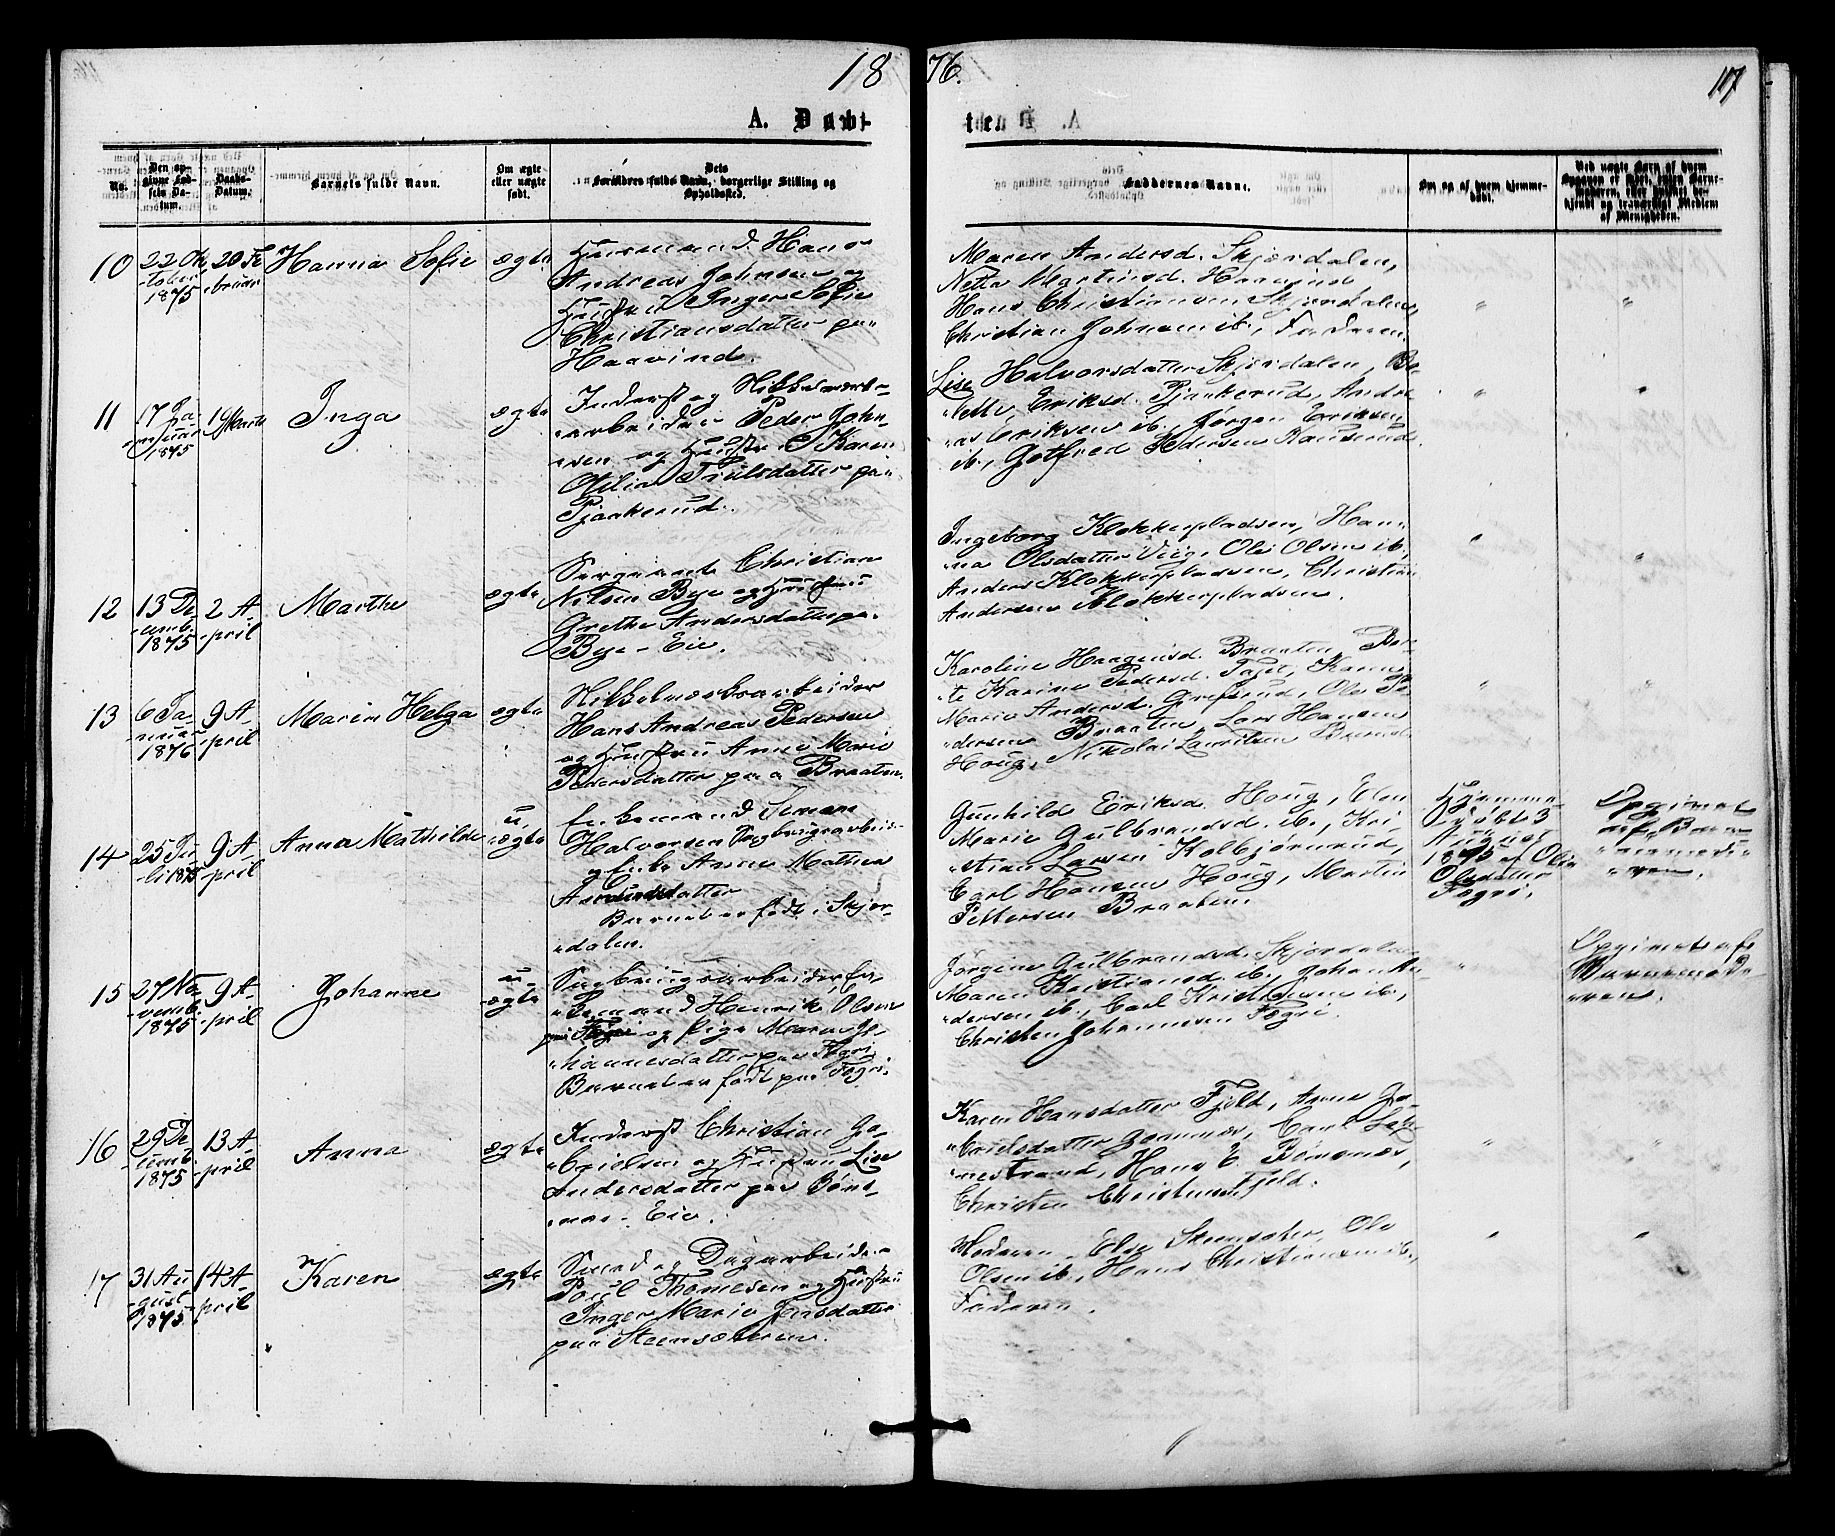 1876.
107
A. Døbte
No.
Den opgivne Fødsels Datum.
Daabs-Datum.
Barnets fulde Navn.
Om ægte eller uægte født.
Dets Forældres fulde Navn, borgerlige Stilling og Opholdssted.
Faddernes Navne.
Om og af hvem hjemmedøbt.
10
22 Ok-
-tober
1875
20 Fe-
-bruar
Hanna Sofie
ægte
Huusmand Hans
Andreas Johnsen og
Hustru Inger Sofie
Christiansdatter paa
Haavind.
Maren Andersd. Skjørdalen,
Netta Martinsd. Haavind
Hans Christiansen Skjørdalen,
Christian Johnsen ib., Faderen.
"
"
11
17 Ja-
-nuar
1875
19 Marts
Inga
ægte
Inderst og Nikkelværks-
-arbeider Peder John-
-sen og Hustru Karen
Otilia Trulsdatter paa
Pjaakerud.
Lise Halvorsdatter Skjørdalen, Be-
-lette Eriksd. Pjaakerud, Andre-
-as Eriksen ib., Jørgen Eriksen
ib., Gotfred Pedersen
"
"
12
13 De-
-cemb.
1875
2 A-
-pril
Marthe
ægte
Sergeant Christian
Nilsen Bye og Hustru
Grethe Andersdatter paa
Bye-Eie.
Ingeborg Klokkerpladsen, Han-
-na Olsdatter Viig, Ole Olsen ib.,
Anders Klokkerpladsen, Christian
Andersen Klokkerpladsen.
"
"
13
6 Ja-
-nuar
1876
9 A-
-pril
Maren Helga
ægte
Nikkelværksarbeider
Hans Andreas Pedersen
og Hustru Anne Marie
Pedersdatter paa Braaten.
Karoline Haagensd. Braaten, Ber-
-te Karine Pedersd.
Marie Andersd. Grefsrud, Ole Pe-
-dersen Braaten, Lars Hansen
Houg, Nikolai Lauritsen
"
"
14
25 Ju-
-li 1875
9 A-
-pril
Anna Mathilde
u-
-ægte
Enkemand Simen
Halvorsen Sagbrugsarbeider
og Enke Anne Mathea
Amundsdatter
Barnet er født i Skjør-
-dalen.
Gunhild Eriksd. Houg, Elen
Marie Gulbrandsd. ib., Kri-
-stian Larsen Kolbjørnrud,
Carl Hansen Houg, Martin
Pettersen Braaten.
Hjemme-
døbt 3
August
1875 af Olia
Olsdatter
Fogri.
Opgivet
af Bar-
-nemode-
-ren.
15
27 No-
-vemb.
1875
9 A-
-pril
Johanne
u-
-ægte
Sagbrugsarbeider, En-
-kemand Henrik Olsen
paa Fogri og Pige Maren Jo-
-hannesdatter paa Fogri
Barnet er født paa Fogri.
Jørgine Gulbrandsd. Skjørdalen
Maren Kristiansd. ib., Johan An-
-dersen ib., Carl Kristiansen ib.,
Christen Johannesen Fogri.
"
Opgivet af
Barnemode-
-ren.
16
29 De-
-cemb.
1875
13 A-
-pril
Anna
ægte
Inderst Christian Ga-
-brielsen og Hustru Lise
Andersdatter paa Bøns-
-næs-Eie.
Karen Hansdatter Fjeld, Anne Ga-
-brielsdatter Gomnæs, Carl
Hans E. Bønsnæs,
Christen Christensen Fjeld.
"
"
17
31 Au-
-gust
1875
14 A-
-pril
Karen
ægte
Smed og Dagarbeider
Poul Thomesen og Hustru
Inger Marie Jensdatter
paa Steensæteren.
Moderen, Else Steensæter, Ole
Olsen ib., Hans Christiansen ib.,
Faderen.
"
"